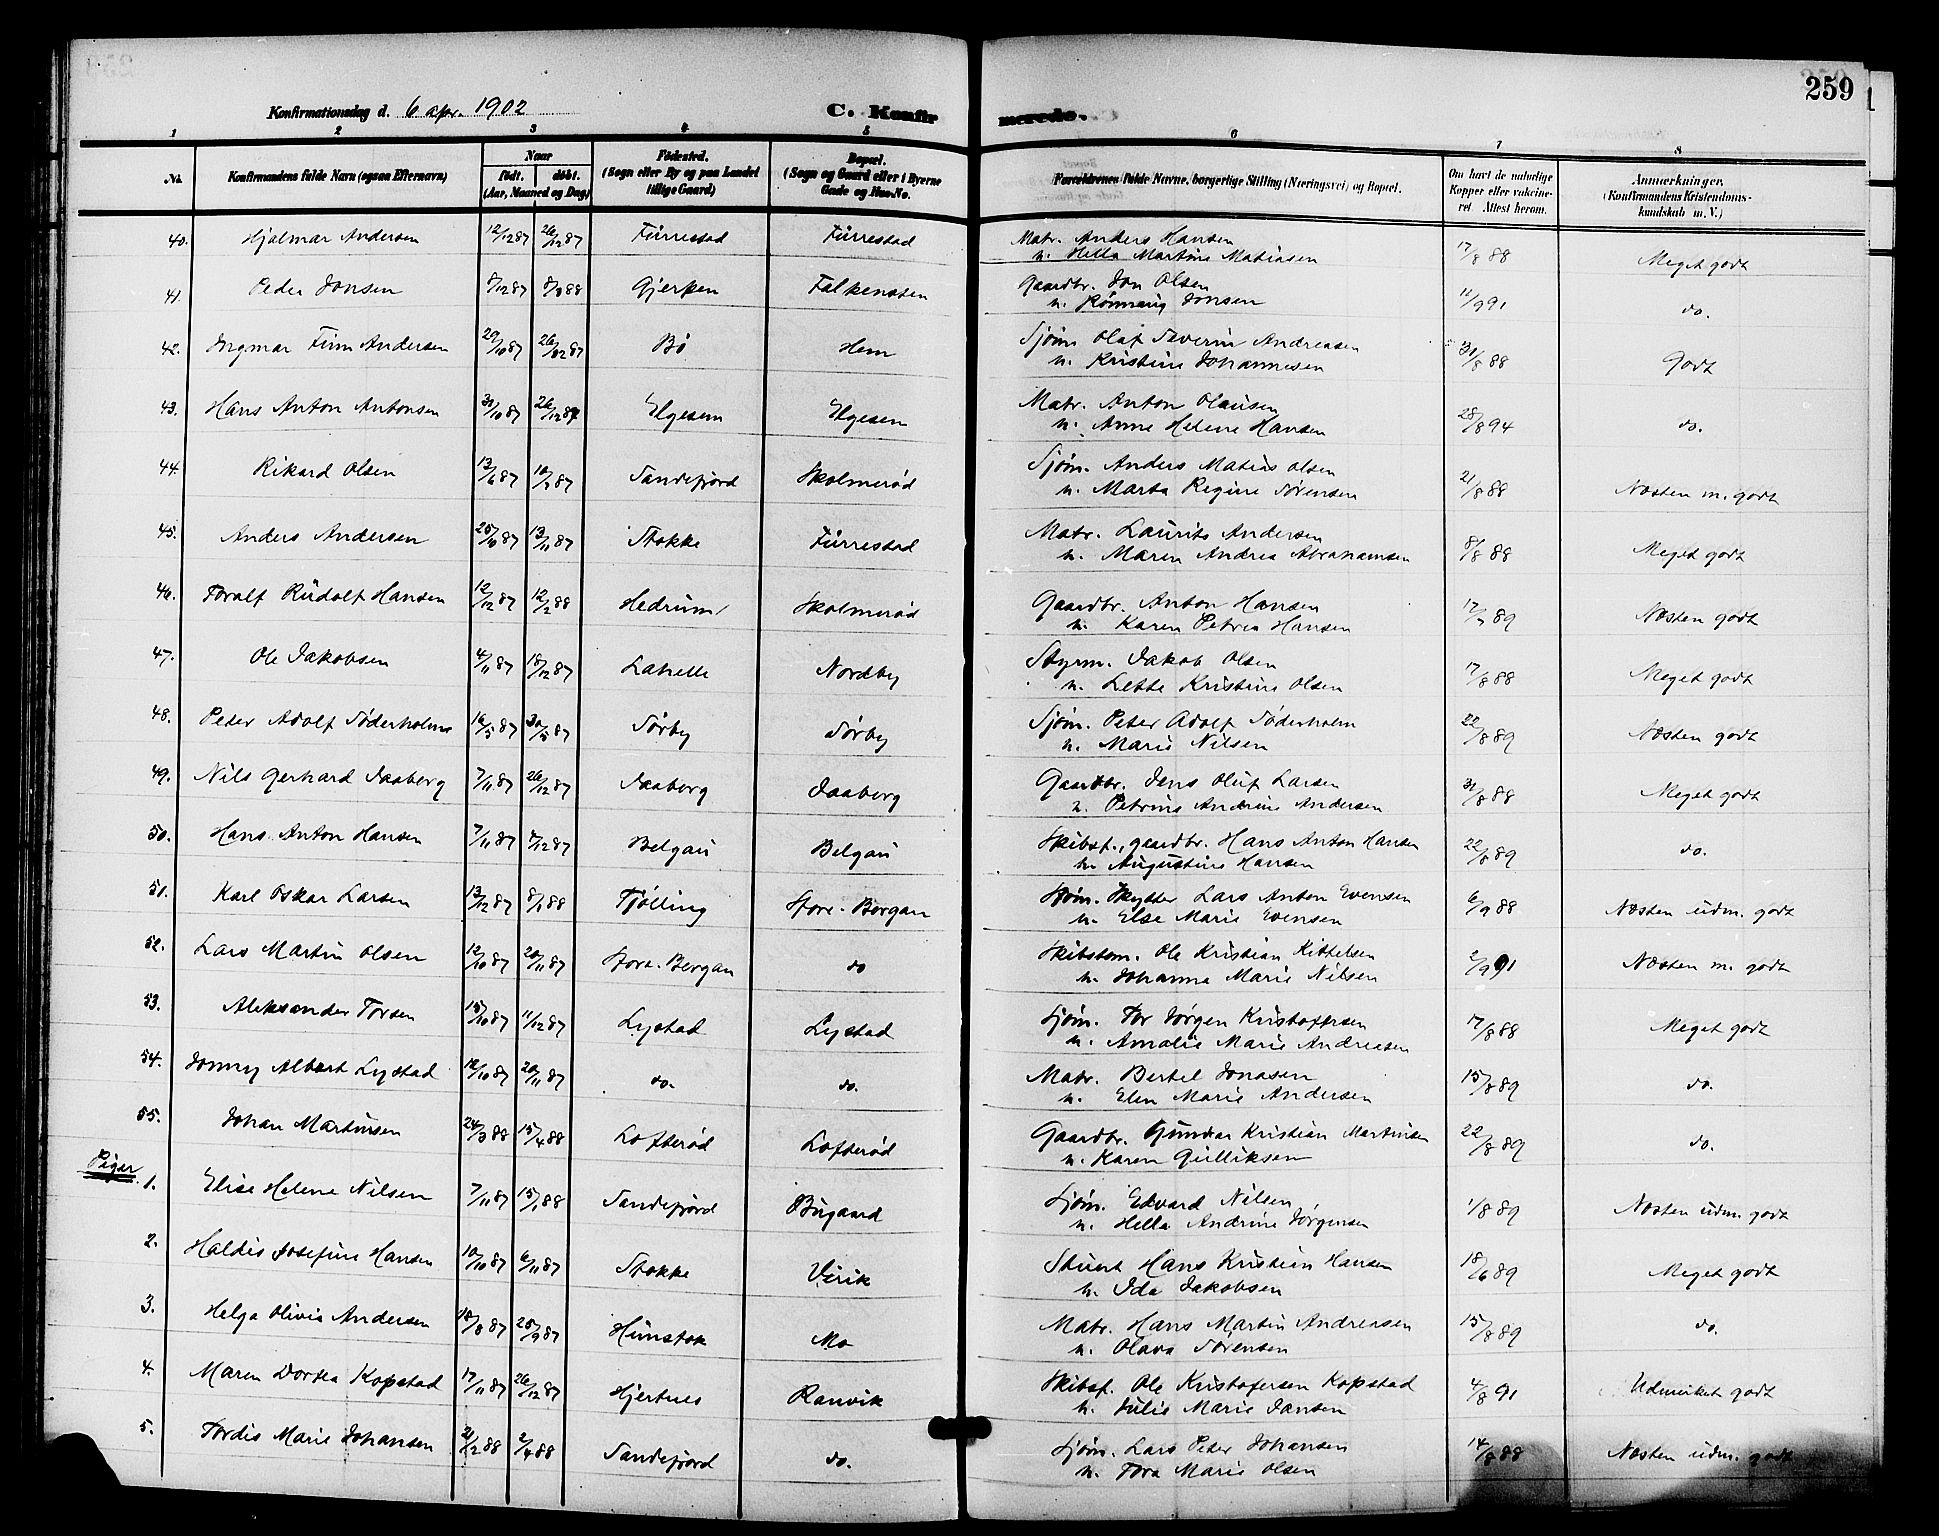 259
Konfirmationsdag d. 6 apr. 1902
C. Konfirmerede.
1 2 3 4 5 6 7 8
No. Konfirmandens fulde Navn (ogsaa Efternavn) Naar født. døbt. (Aar, Maaned og Dag) Fødested. (Sogn eller By og paa Landet tillige Gaard) Bopæl. (Sogn og Gaard eller i Byerne Gade og Hus-No. Forældrenes fulde Navne, borgerlige Stilling (Næringsvei) og Bopæl. Om havt de naturlige Kopper eller vakcineret Attest herom. Anmærkninger. (Konfirmandens Kristendomskundskab m. V.)
40. Hjalmar Andersen 12/12 87 26/12 87 Furrestad Furrestad Matr. Anders Hansen 17/8 88 Meget godt
u. Hella Martine Matiasen
41. Peder Jonsen 8/12 87 Gjerpen Falkensten Gaardbr. Jon Olsen 11/9 91 do.
u. Rønnaug Jonsen
42. Ingmar Finn Andersen 29/10 87 26/12 87 Bø Hem Sjøm. Olaf Severin Andreasen 31/8 88 Godt
u. Kristine Johannesen
43. Hans Anton Antonsen 31/10 87 26/12 87 Elgesem Elgesem Matr. Anton Olausen 28/8 94 do.
u. Anne Helene Hansen
44. Rikard Olsen 13/6 87 10/7 87 Sandefjord Skolmerød Sjøm. Anders Matias Olsen 21/8 88 Næsten m. godt
u. Marta Regine Sørensen
45. Anders Andersen 25/10 87 13/11 87 Stokke Furrestad Matr. Laurits Andersen 8/8 88 Meget godt
u. Maren Andrea Abrahamsen
46. Toralf Rudolf Hansen 12/12 87 12/2 88 Hedrum Skolmerød Gaardbr. Anton Hansen 17/7 89 Næsten godt
u. Karen Petrea Hansen
47. Ole Jakobsen 4/11 87 18/12 87 Lahelle Nordby Styrm. Jakob Olsen 17/8 88 Meget godt
u. Lette Kristine Olsen
48. Peter Adolf Søderholm 16/5 87 30/5 87 Sørby Sørby Sjøm. Peter Adolf Søderholm 22/8 89 Næsten godt
u. Marie Nilsen
49. Nils Gerhard Jaaberg 7/11 87 26/12 87 Jaaberg Jaaberg Gaardbr. Jens Oluf Larsen 31/8 88 Meget godt
u. Petrine Andrine Andersen
50. Hans Anton Hansen 7/11 87 4/12 87 Belgau Belgau Skibsf., gaardbr. Hans Anton Hansen 22/8 89 do.
u. Augustine Hansen
51. Karl Oskar Larsen 13/12 87 8/1 88 Tjølling Store-Bergan Sjøm. Skytter Lars Anton Evensen 6/9 88 Næsten udm. godt
u. Else Marie Evensen
52. Lars Martin Olsen 12/10 87 20/11 87 Store-Bergan do Skibstøm. Ole Kristian Kittelsen 2/9 91 Næsten m. godt
u. Johanna Marie Nilsen
53. Aleksander Torsen 15/10 87 11/12 87 Lystad Lystad Sjøm. Tor Jørgen Kristoffersen 17/8 88 Meget godt
u. Amalie Marie Andreasen
54. Jonny Albert Lystad 12/10 87 20/11 87 do. do. Matr. Bertel Jonasen 15/8 89 do.
u. Elen Marie Andersen
55. Johan Martinsen 24/3 88 15/4 88 Lofterød Lofterød Gaardbr. Gunvar Kristian Martinsen 22/8 89 do.
u. Karen Gulliksen
Piger
1. Elise Helene Nilsen 7/11 87 15/1 88 Sandefjord Bugaard Sjøm. Edvard Nilsen 1/8 89 Næsten udm. godt
u. Hella Andrine Jørgensen
2. Haldis Josefine Hansen 10/10 87 6/11 87 Stokke Virik Stuert Hans Kristian Hansen 18/6 89 Meget godt
u. Ida Jakobsen
3. Helga Olivia Andersen 18/8 87 25/9 87 Hunstok Mo Matr. Hans Martin Andreasen 15/8 89 do.
u. Olava Sørensen
4. Maren Dortea Kopstad 17/11 87 26/12 87 Hjertnes Ranvik Skibsf. Ole Kristofersen Kopstad 4/8 91 Udmerket godt
u. Julie Marie Jansen
5. Tordis Marie Johansen 21/2 88 2/4 88 Sandefjord do. Sjøm. Lars Peter Johansen 14/8 88 Næsten udm. godt
u. Tora Marie Olsen